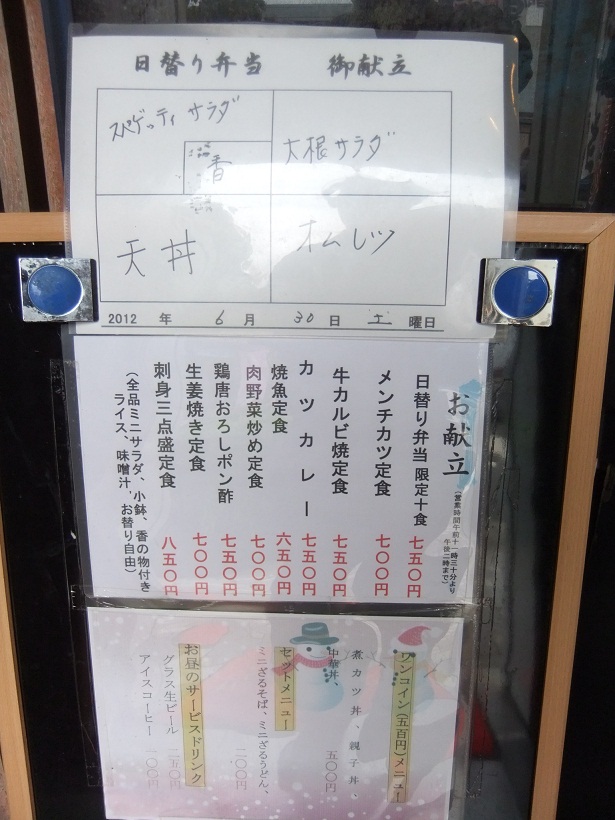 日替り弁当 御献立
スパゲッティサラダ
大根サラダ
香
天丼
オムレツ
2012 年 6 月 30 日 土 曜日
お献立
(営業時間午前十一時三十分より
午後二時まで)
日替り弁当 限定十食 七五〇円
メンチカツ定食 七〇〇円
牛カルビ焼定食 七五〇円
カツカレー 七五〇円
焼魚定食 六五〇円
肉野菜炒め定食 七〇〇円
鶏唐おろしポン酢 七五〇円
生姜焼き定食 七〇〇円
刺身三点盛定食 八五〇円
(全品ミニサラダ、小鉢、香の物付き
ライス、味噌汁、お替り自由)
ワンコイン(五百円)メニュー
煮カツ丼、親子丼、
中華丼、 五〇〇円
セットメニュー
ミニざるそば、ミニざるうどん、
二〇〇円
お昼のサービスドリンク
グラス生ビール 二五〇円
アイスコーヒー 一〇〇円